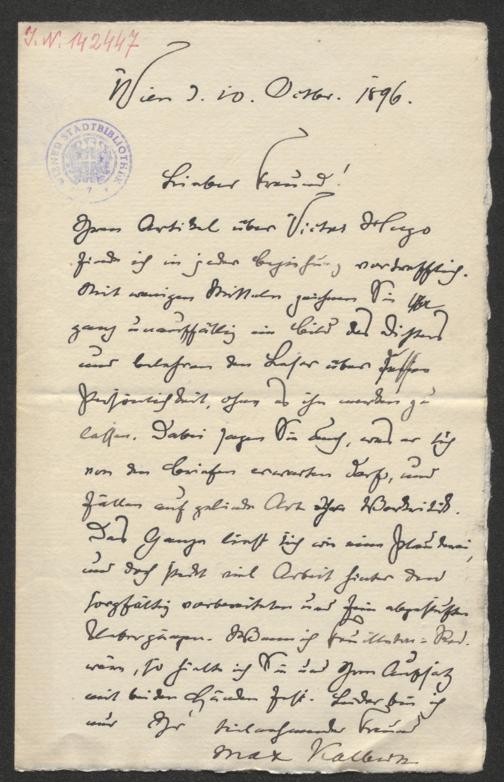 J. N. 142447
Wien d. 10. Octbr. 1896.
WIENER STADTBIBLIOTHEK
Lieber Freund!
Ihren Artikel über Victor Hugo
finde ich in jeder Beziehung vortrefflich.
Mit wenigen Mitteln zeichnen Sie
ganz unauffällig ein Bild des Dichters
und belehren den Leser über dessen
Persönlichkeit, ohne es ihn merken zu
lassen. Dabei sagen Sie auch, was er sich
von den Briefen erwarten darf, und
fällen auf gelinde Art Ihr Werturteil.
Das Ganze liest sich wie eine Plauderei,
und doch steckt viel Arbeit hinter den
sorgfältig vorbereiteten und fein abgestuften
Uebergängen. Wenn ich Feuilleton-Red.
wäre, so hielte ich Sie und Ihren Aufsatz
mit beiden Händen fest. Leider bin ich
nur Ihr teilnehmender Freund
Max Kalbeck